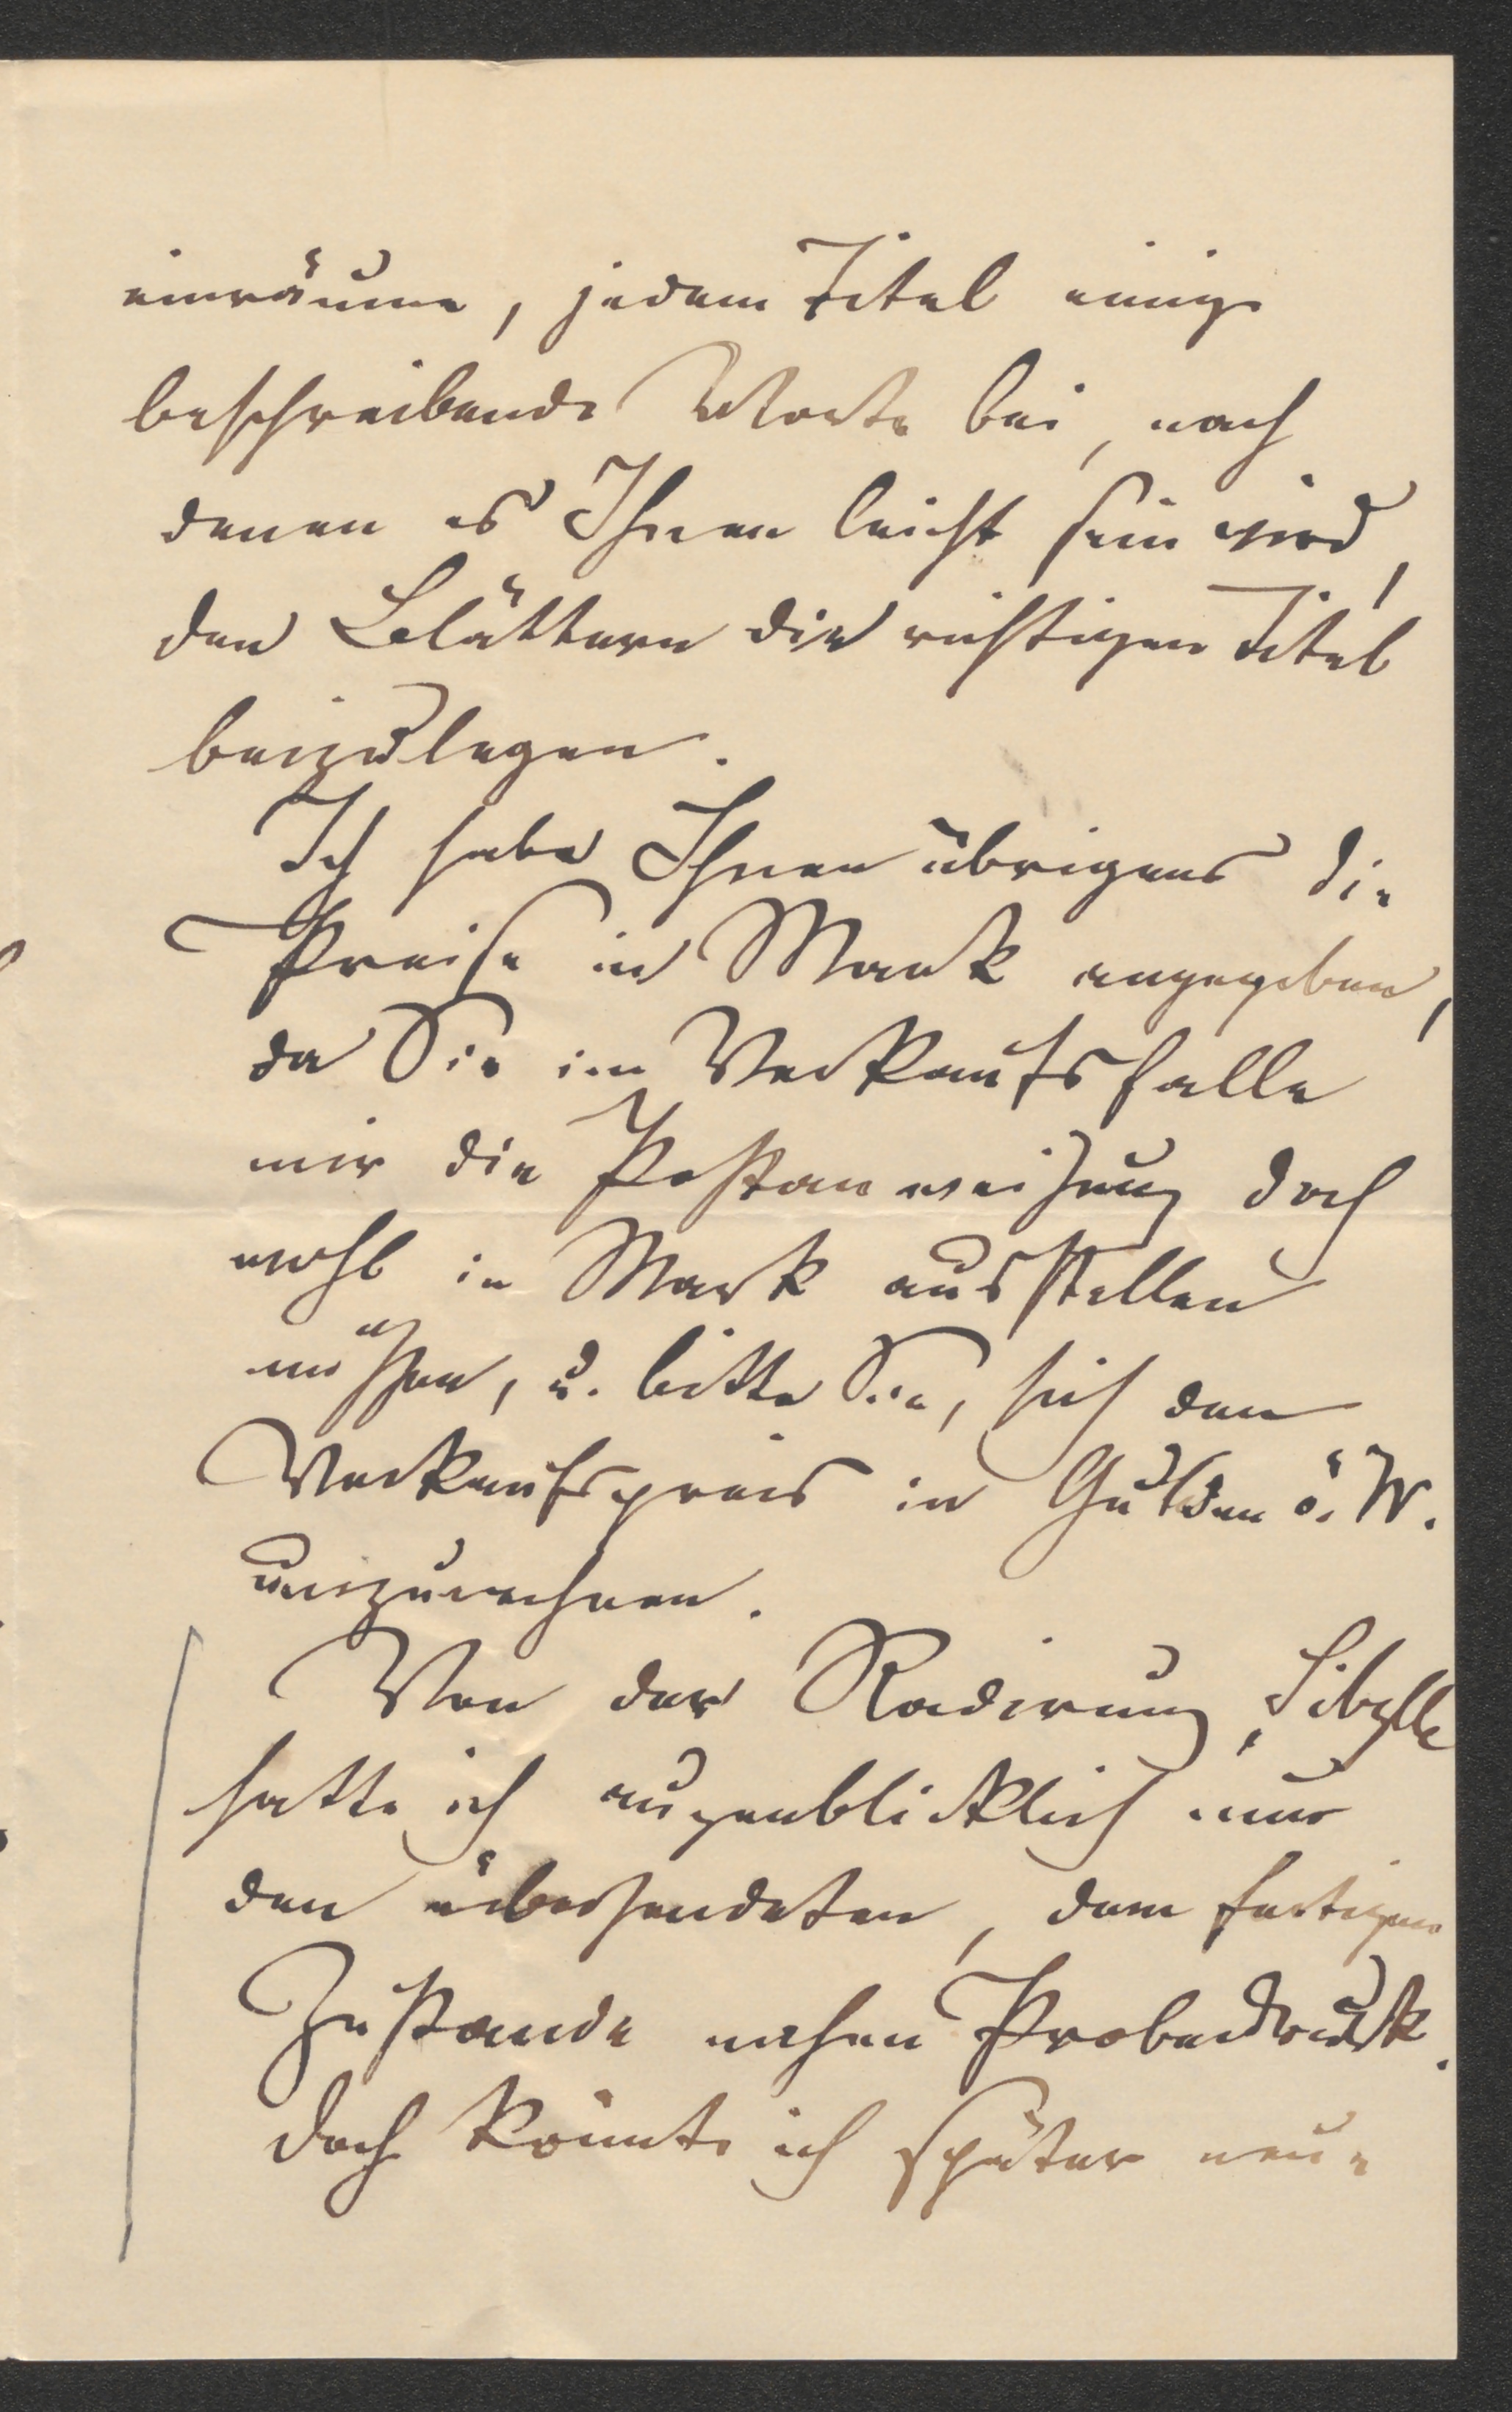 einräume, jedem Titel einige
beschreibende Worte bei, nach
denen es Ihnen leicht sein wird,
den Blättern die richtigen Titel
beizulegen.
Ich habe Ihnen übrigens die
Preise in Mark angegeben,
da Sie im Verkaufsfalle
mir die Postanweisung doch
wohl in Mark ausstellen
müssen, u. bitte Sie, sich den
Verkaufspreis in Gulden ö. W.
umzurechnen.
Von der Radirung „Sibylle
hatte ich augenblicklich nur
den übersendeten, dem fertigen
Zustande nahen Probedruck.
doch könnte ich später neue